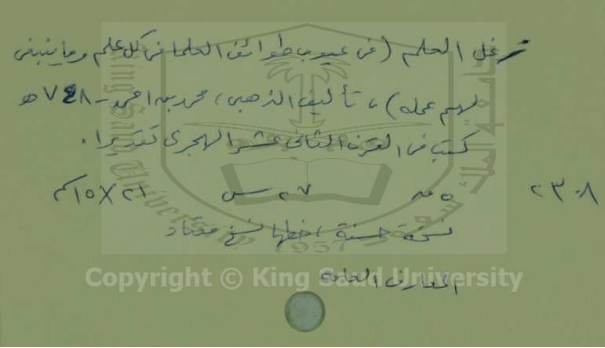 زغل العلم (في عيوب طوائف العلماء في كل علم وما ينبغي
لهم عمله)، تأليف الذهبي، محمد بن أحمد - ٧٤٨ هـ
كتب في القرن الثاني عشر الهجري تقديرا.
٢٣٠٨ ٥ ق ٢٧ س ٢١×١٥ سم
نسخة حسنة، خطها نسخ معتاد
1957
Copyright © King Saud University
المعارف العامة